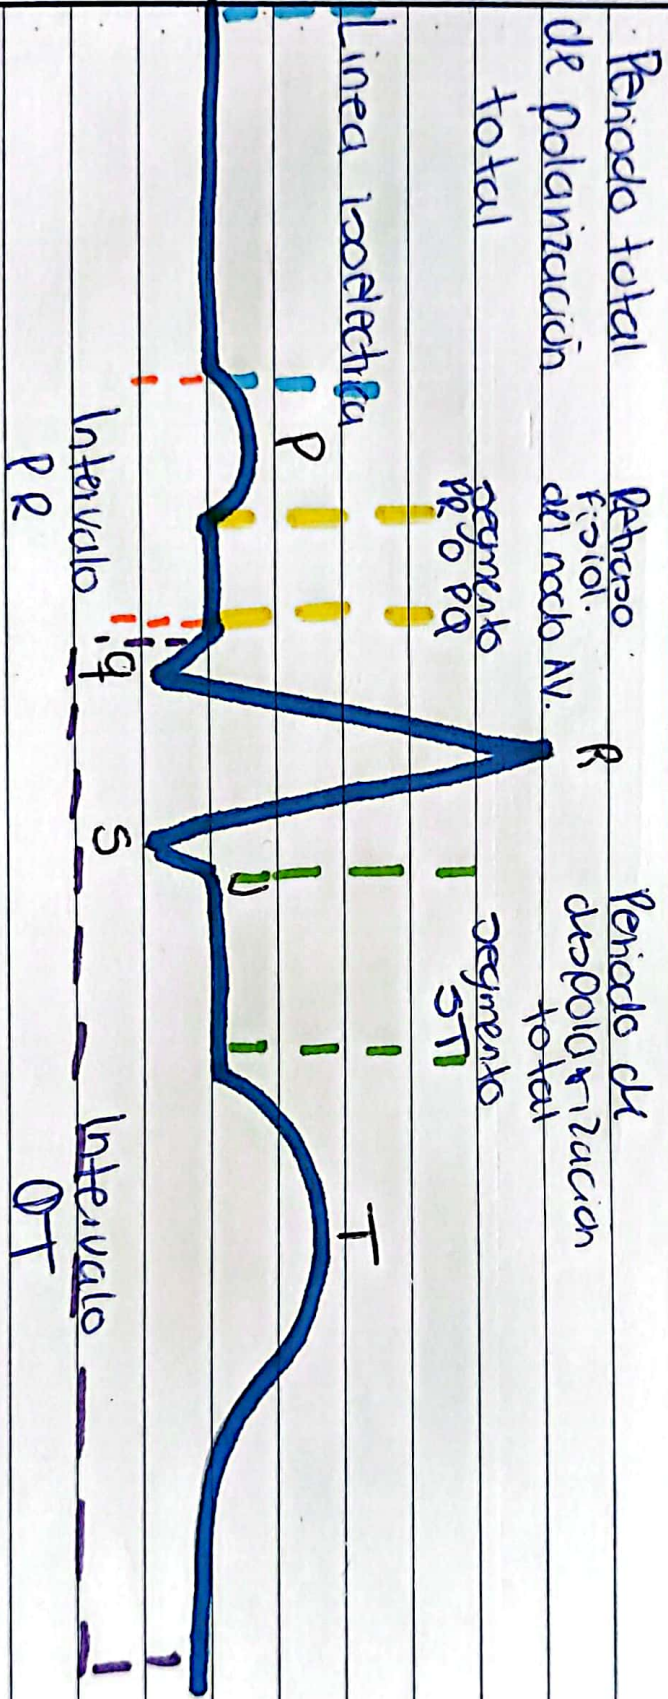 Periodo total
de polarización
total
Linea isoelectrica
P
Intervalo
PR
Retraso
fisiol.
del nodo AV.
segmento
PR o PQ
q
R
S
J
Periodo de
despolarizacion
total
segmento
ST
T
Intervalo
QT